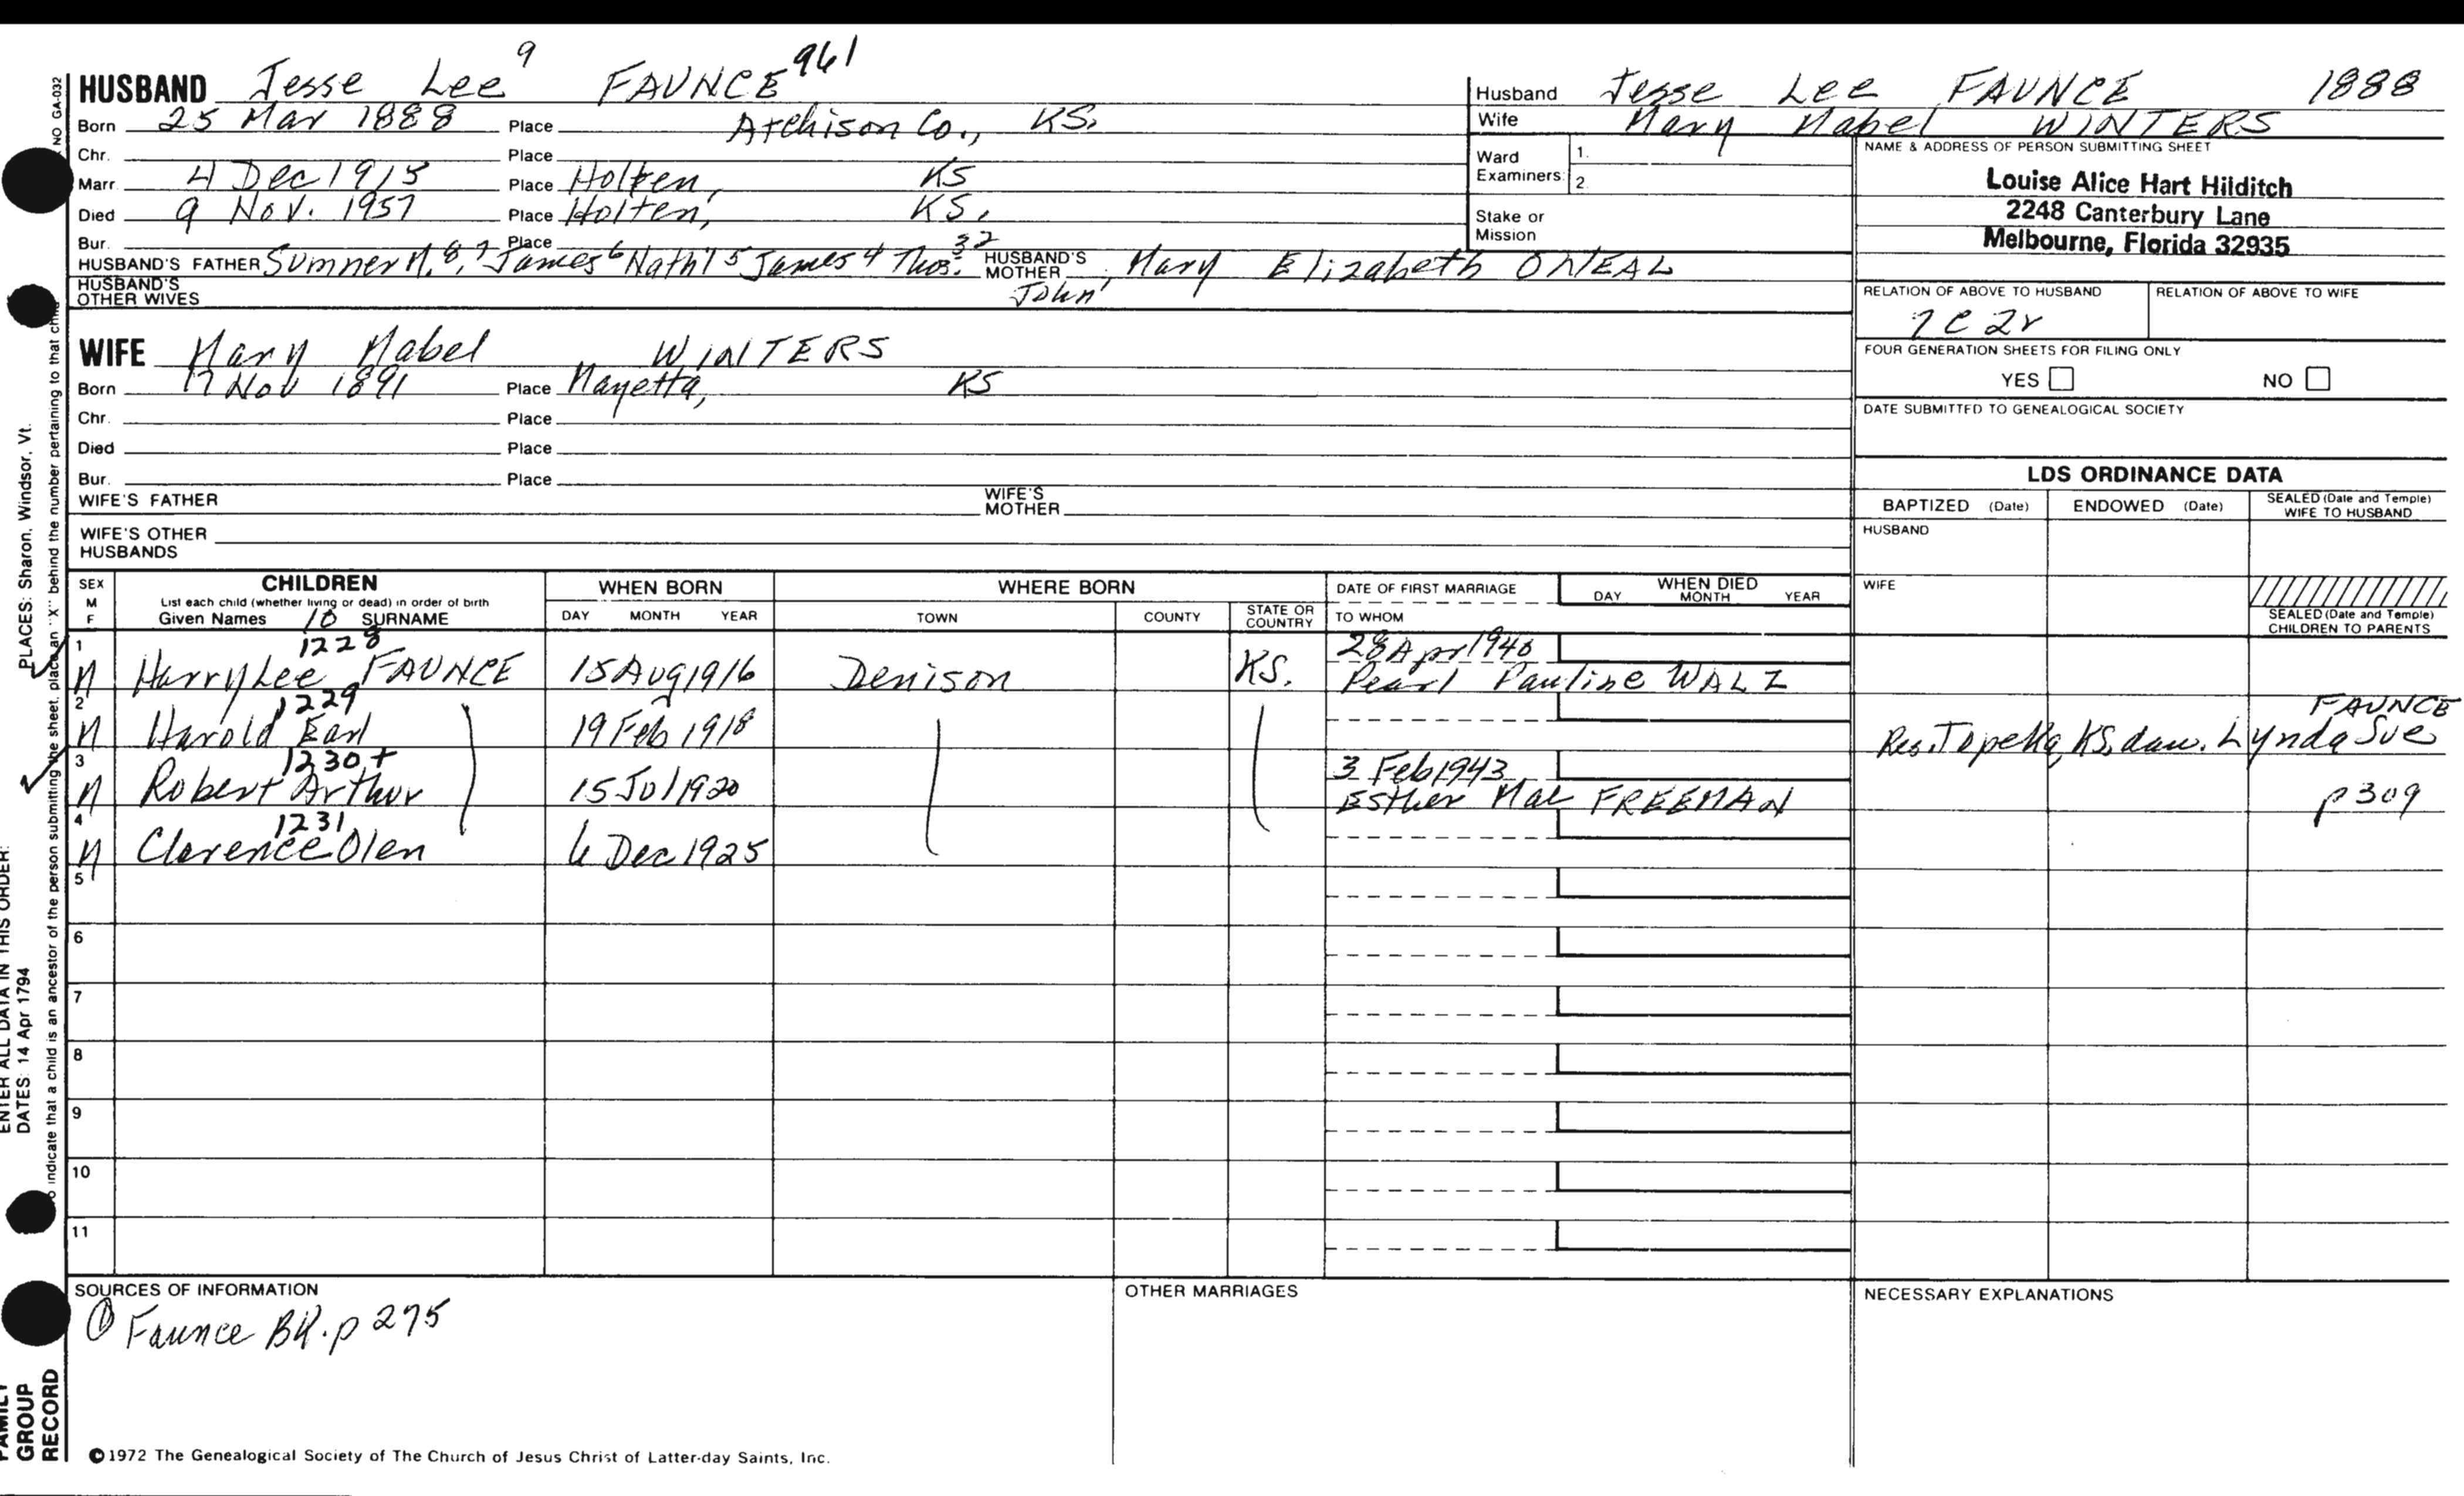 HUSBAND Jesse Lee 9 FAUNCE 961
Born 25 Mar 1888 Place Atchison Co., KS.
Chr. Place
Marr. 4 Dec 1915 Place Holten, KS
Died 9 Nov. 1957 Place Holten, KS.
Bur. Place
HUSBAND'S FATHER Sumner M. 8, 7 James 6 Nath'l 5 James 4 Thos. 3 2 John 1 HUSBAND'S MOTHER Mary Elizabeth ONEAL
HUSBAND'S OTHER WIVES
Husband Jesse Lee FAUNCE 1888
Wife Mary Mabel WINTERS
Ward Examiners: 1.
2.
Stake or Mission
NAME & ADDRESS OF PERSON SUBMITTING SHEET
Louise Alice Hart Hilditch
2248 Canterbury Lane
Melbourne, Florida 32935
RELATION OF ABOVE TO HUSBAND RELATION OF ABOVE TO WIFE
7C 2r
FOUR GENERATION SHEETS FOR FILING ONLY
YES NO
DATE SUBMITTED TO GENEALOGICAL SOCIETY
WIFE Mary Mabel WINTERS
Born 17 Nov 1891 Place Mayetta, KS
Chr. Place
Died Place
Bur. Place
WIFE'S FATHER WIFE'S MOTHER
WIFE'S OTHER HUSBANDS
LDS ORDINANCE DATA
BAPTIZED (Date) ENDOWED (Date) SEALED (Date and Temple) WIFE TO HUSBAND
HUSBAND
WIFE
SEALED (Date and Temple) CHILDREN TO PARENTS
SEX M F CHILDREN WHEN BORN WHERE BORN DATE OF FIRST MARRIAGE WHEN DIED
List each child (whether living or dead) in order of birth
Given Names 10 SURNAME DAY MONTH YEAR TOWN COUNTY STATE OR COUNTRY TO WHOM DAY MONTH YEAR
1 M 1228 Harry Lee FAUNCE 15 Aug 1916 Denison KS. 28 Apr 1940
Pearl Pauline WALZ
2 M 1229 Harold Earl 19 Feb 1918 Res. Topeka, KS. dau. Lynda Sue FAUNCE
3 M 1230+ Robert Arthur 15 Jul 1920 3 Feb 1943
Esther Mae FREEMAN p 309
4 M 1231 Clarence Olen 6 Dec 1925
5
6
7
8
9
10
11
SOURCES OF INFORMATION
① Faunce BK. p 275
OTHER MARRIAGES
NECESSARY EXPLANATIONS
©1972 The Genealogical Society of The Church of Jesus Christ of Latter-day Saints, Inc.
NO GA-032
indicate that a child is an ancestor of the person submitting the sheet, place an "X" behind the number pertaining to that
PLACES: Sharon, Windsor, Vt.
ENTER ALL DATA IN THIS ORDER:
DATES: 14 Apr 1794
FAMILY
GROUP
RECORD